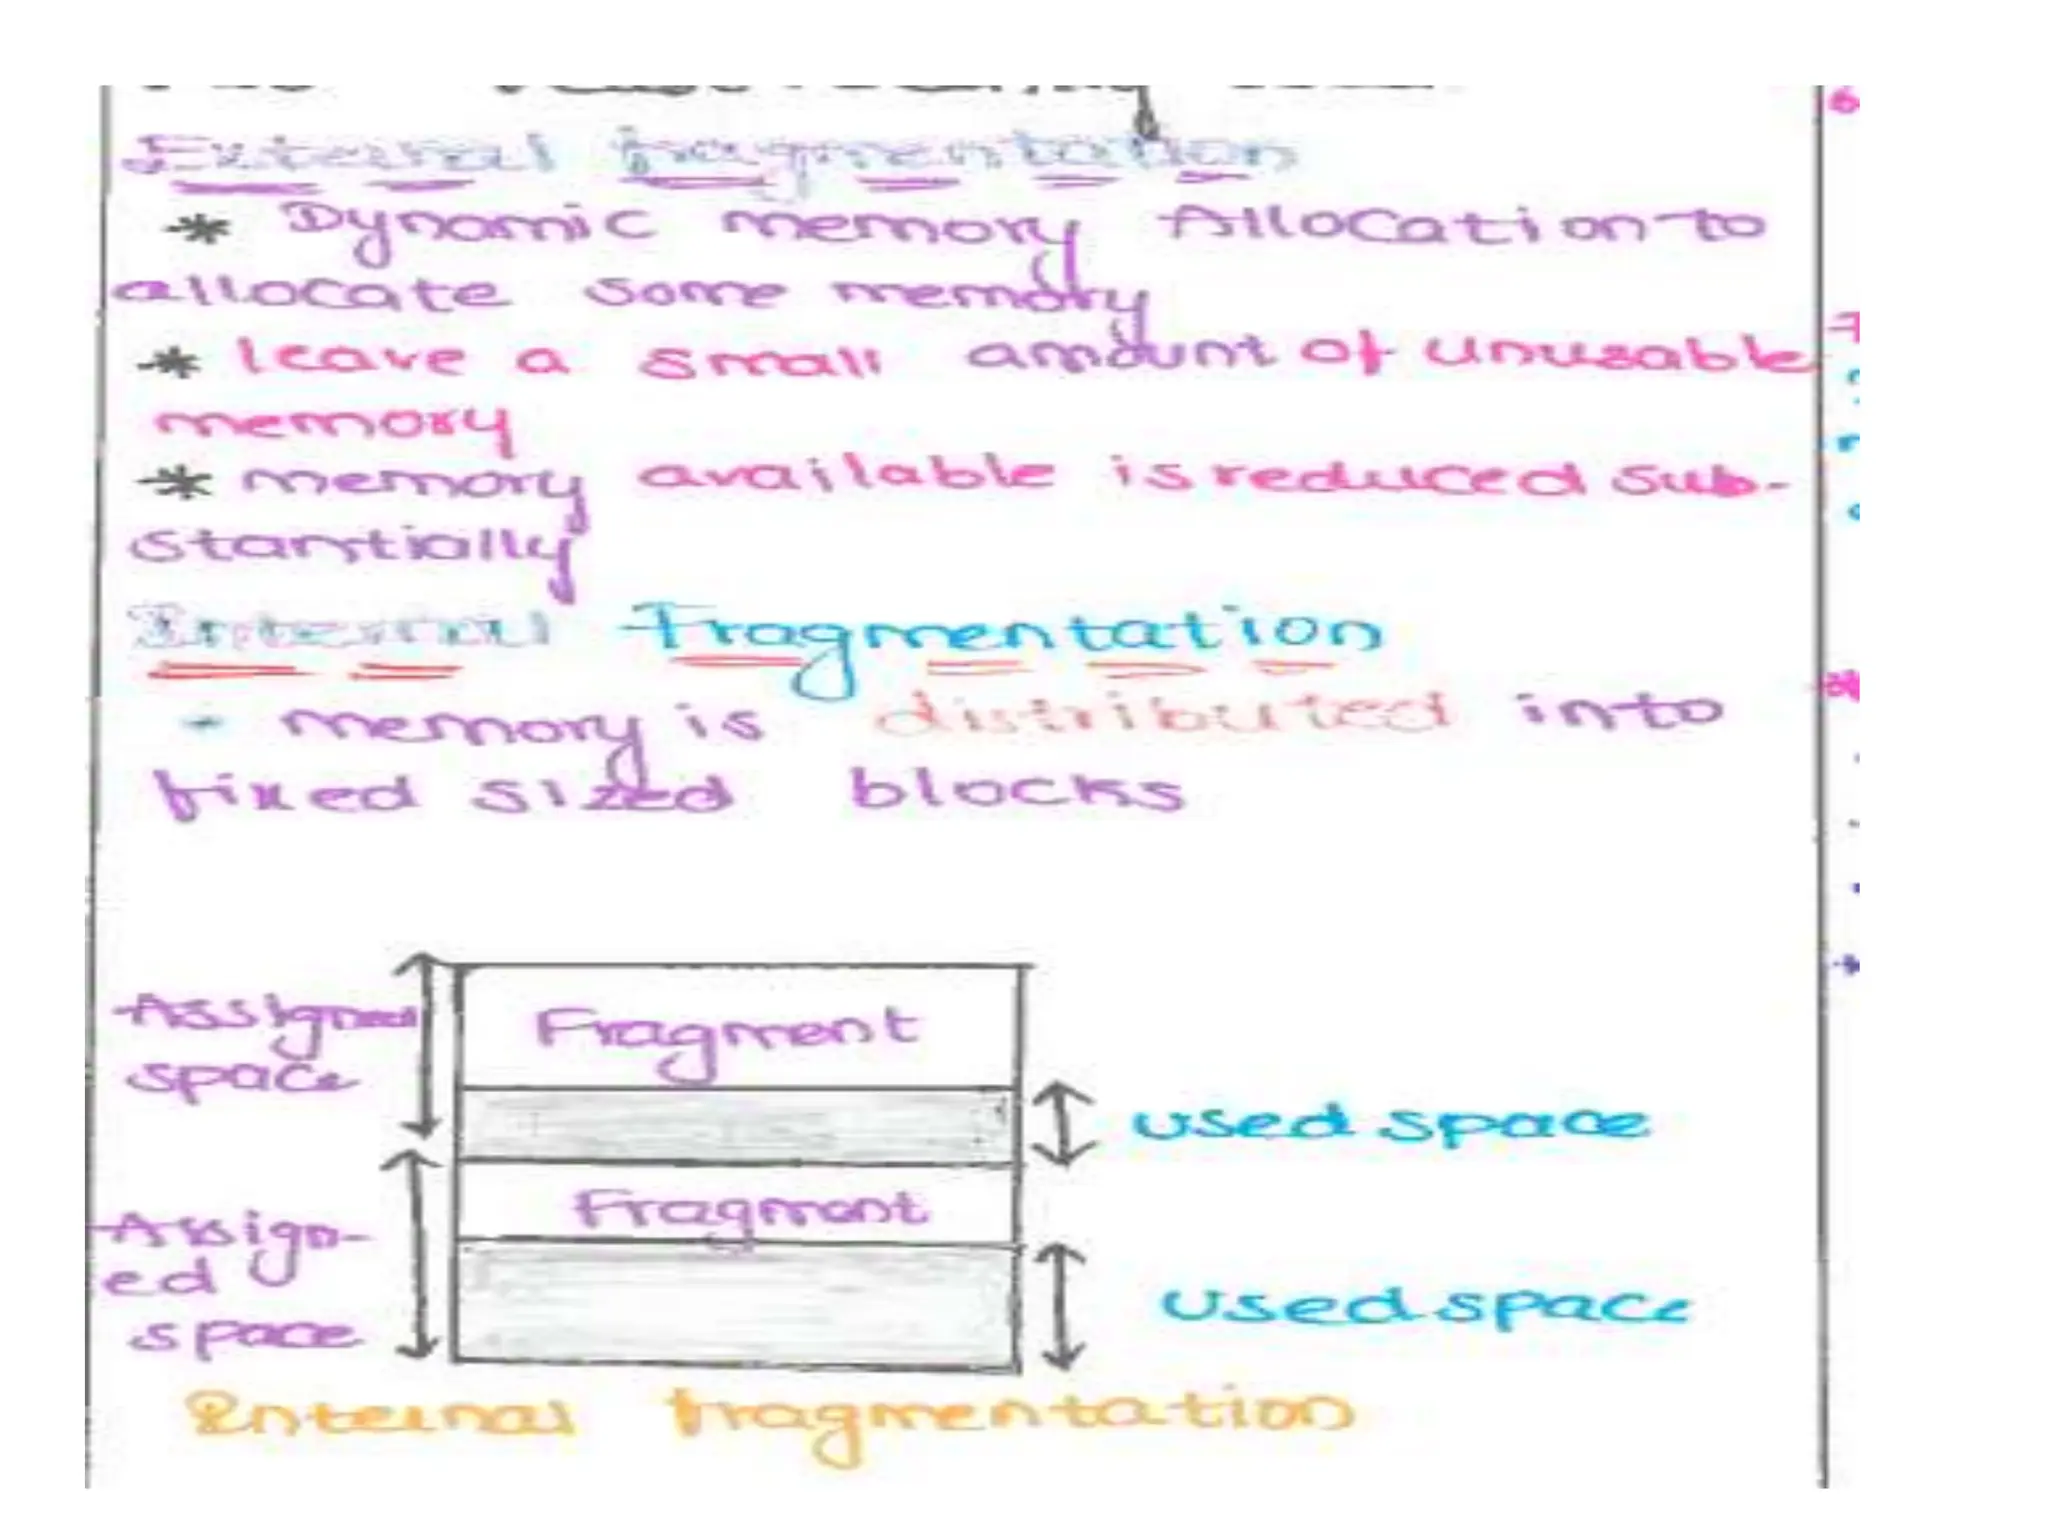 External fragmentation
* Dynamic memory Allocation to
allocate some memory
* leave a small amount of unusable
memory
* memory available is reduced sub-
stantially
Internal Fragmentation
- memory is distributed into
fixed sized blocks
Assigned
space
Fragment
used space
Fragment
Assign-
ed
space
used space
Internal fragmentation